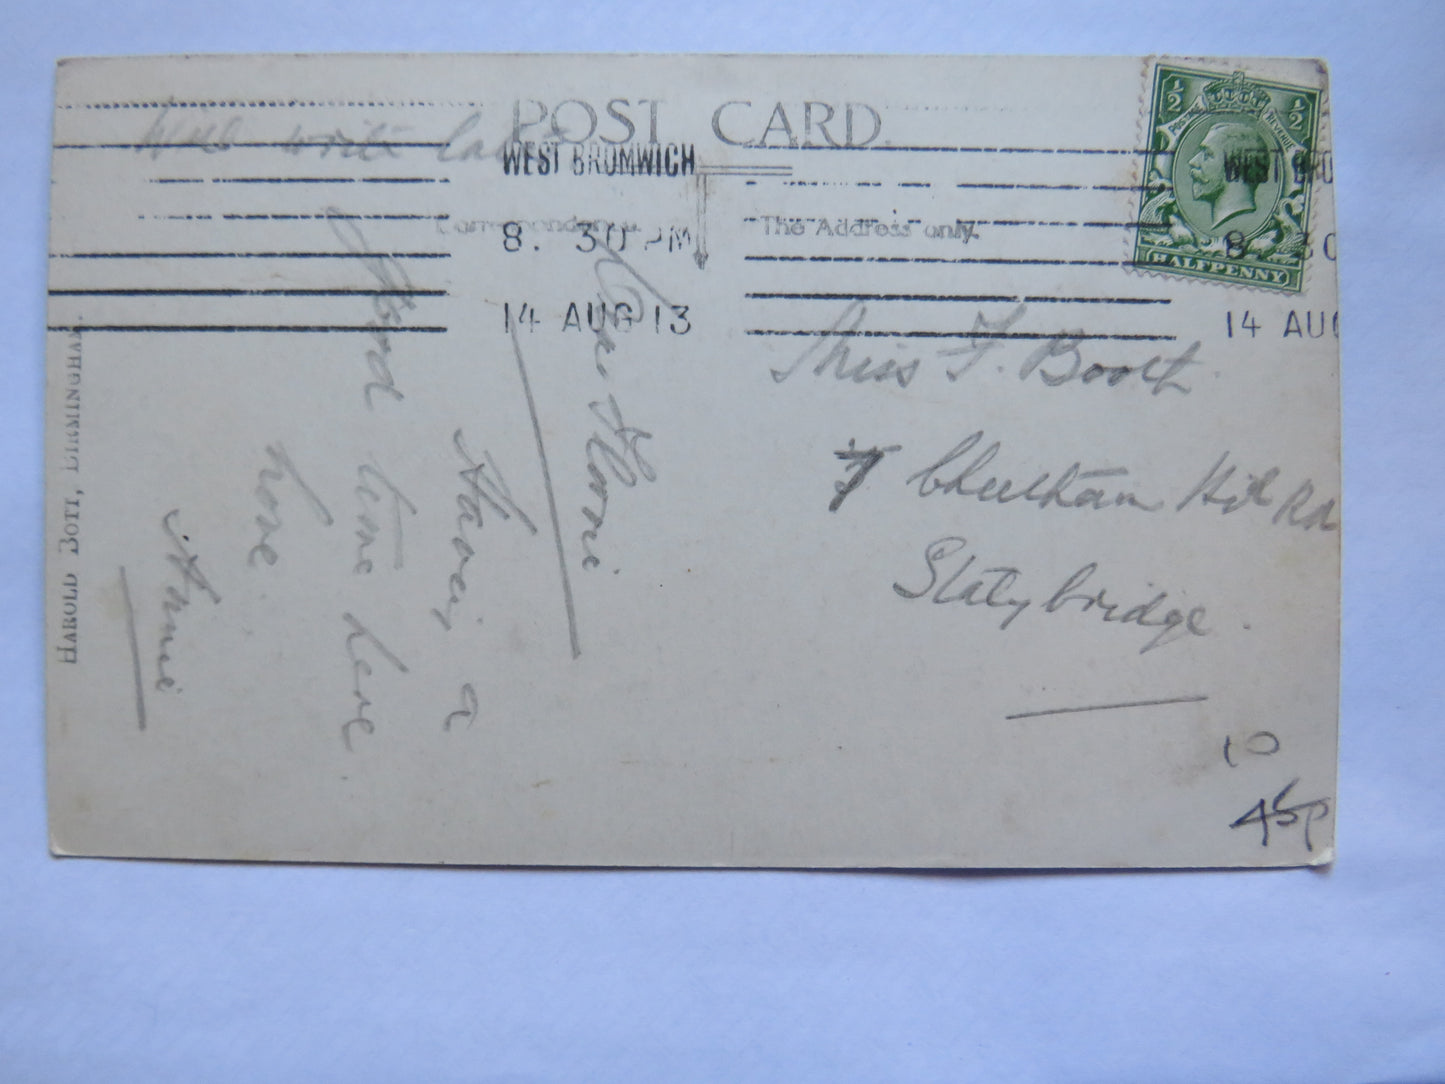 POST CARD.
Will write later
WEST BROMWICH
8. 30 PM
14 AUG 13
Correspondence.
The Address only.
½ ½
POSTAGE REVENUE
HALFPENNY
WEST BRO
8. 30
14 AUG
Miss F. Booth
7 Cheetham Hill Rd
Stalybridge.
Dear Florrie
Having a
good time here
love.
Annie
HAROLD BOTT, BIRMINGHAM.
10
45p